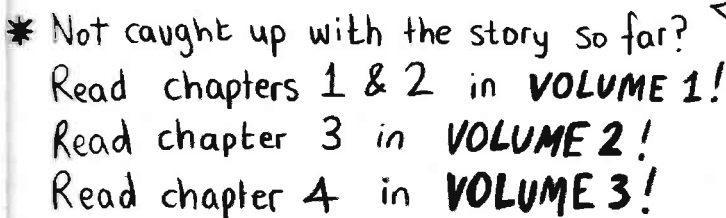 * Not caught up with the story so far?
Read chapters 1 & 2 in VOLUME 1!
Read chapter 3 in VOLUME 2!
Read chapter 4 in VOLUME 3!